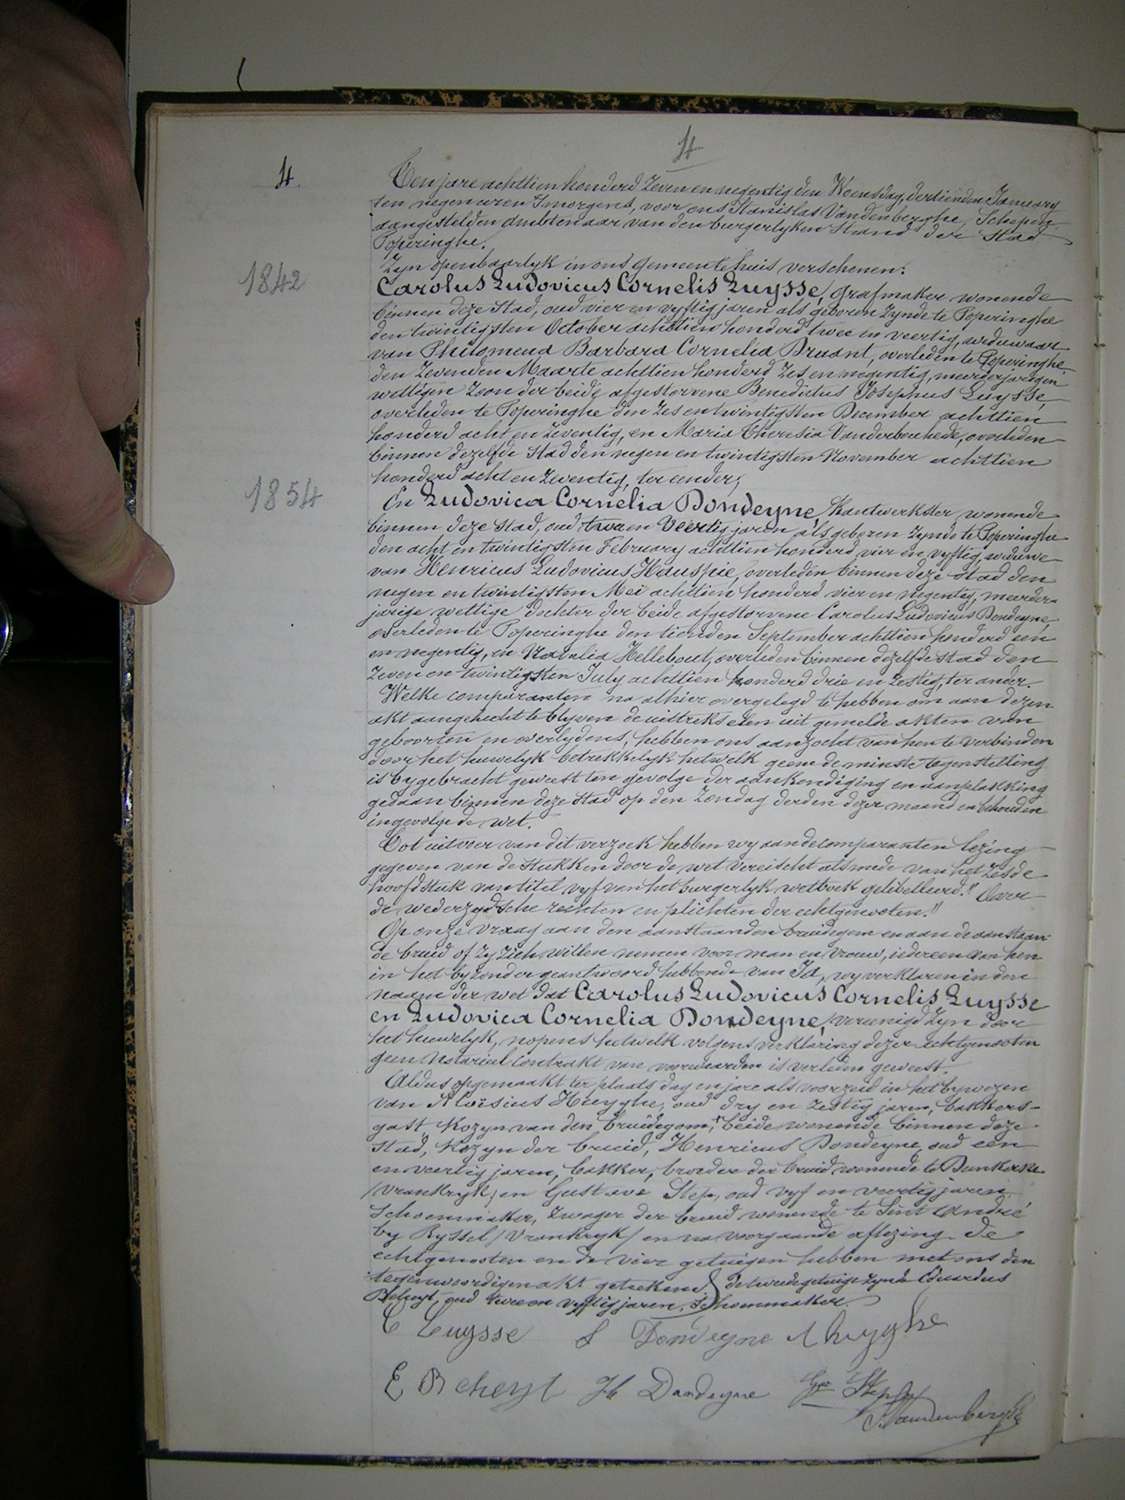 4
4
Ten jare achttien honderd zeven en negentig den Woensdag, dertienden January
ten negen uren 's morgens, voor ons Stanislas Vandenberghe, Schepen
aangestelden ambtenaar van den burgerlyken Stand der Stad
Poperinghe.
Zyn openbaarlyk in ons gemeentehuis verschenen:
1842
Carolus Ludovicus Cornelis Luysse, grafmaker wonende
binnen deze Stad, oud vier en vyftig jaren als geboren zynde te Poperinghe
den twintigsten October achttien honderd twee en veertig, weduwaar
van Philomena Barbara Cornelia Druant, overleden te Poperinghe
den zevenden Maarte achttien honderd zes en negentig, meerderjarigen
wettigen zoon der beide afgestorvene Benedictus Josephus Luysse,
overleden te Poperinghe den zes en twintigsten December achttien
honderd acht en zeventig, en Maria Theresia Vanderbouhede, overleden
binnen dezelfde Stad den negen en twintigsten November achttien
honderd acht en zeventig, ter eender;
1854
En Ludovica Cornelia Dondeyne, Kantwerkster wonende
binnen deze Stad, oud twee en veertig jaren als geboren zynde te Poperinghe
den acht en twintigsten February achttien honderd vier en vyftig, weduwe
van Henricus Ludovicus Hauspie, overleden binnen deze Stad den
negen en twintigsten Mei achttien honderd vier en negentig, meerder-
jarige wettige dochter der beide afgestorvene Carolus Ludovicus Dondeyne,
overleden te Poperinghe den tienden September achttien honderd een
en negentig, en Natalia Hellebout, overleden binnen dezelfde Stad den
zeven en twintigsten July achttien honderd drie en zestig, ter ander.
Welke comparanten na alhier overgelegd te hebben om aan dezen
akt aangehecht te blyven de uittrekselen uit gemelde akten van
geboorten en overlydens, hebben ons aanzocht van hen te verbinden
door het huwelyk betrekkelyk hetwelk geene de minste tegenstelling
is bygebracht geweest ten gevolge der aankondiging en aanplakking
gedaan binnen deze Stad op den Zondag derden dezer maand en behouden
ingevolge de wet.
Tot uitvoer van dit verzoek hebben wy aan de comparanten lezing
gegeven van de stukken door de wet vereischt alsmede van het zesde
hoofdstuk van titel vyf van het burgerlyk wetboek getitelleerd: "Over
de wederzydsche rechten en plichten der echtgenooten."
Op onze vraag aan den aanstaanden bruidegom en aan de aanstaan-
de bruid of zy zich willen nemen voor man en vrouw, iedereen van hen
in het byzonder geantwoord hebbende van Ja, wy verklaren in den
naam der wet dat Carolus Ludovicus Cornelis Luysse
en Ludovica Cornelia Dondeyne, vereenigd zyn door
het huwelyk, nopens hetwelk volgens verklaring dezer echtgenooten
geen Notarieel contrakt van voorwaarden is verleden geweest.
Aldus opgemaakt ter plaats dag en jare als voorzeid in het bywezen
van Aloïsius Huyghe, oud dry en zestig jaren, bakkers-
gast, Kozyn van den bruidegom, beide wonende binnen deze
stad, Kozyn der bruid, Henricus Dondeyne, oud een
en veertig jaren, bakker, broeder der bruid wonende te Dunkerke
/Vrankryk/ en Gustave Step, oud vyf en veertig jaren
Schoenmaker, zwager der bruid wonende te Sint André
by Ryssel /Vrankryk/ en na voorgaande aflezing de
echtgenooten en de vier getuigen hebben met ons den
tegenwoordigen akt geteekend) de tweede getuige zynde Eduardus
Beheyt, oud twee en vyftig jaren, schoenmaker.
C Luysse L Dondeyne A Huyghe
E Beheyt H Dondeyne Gve Step
S. Vandenberghe